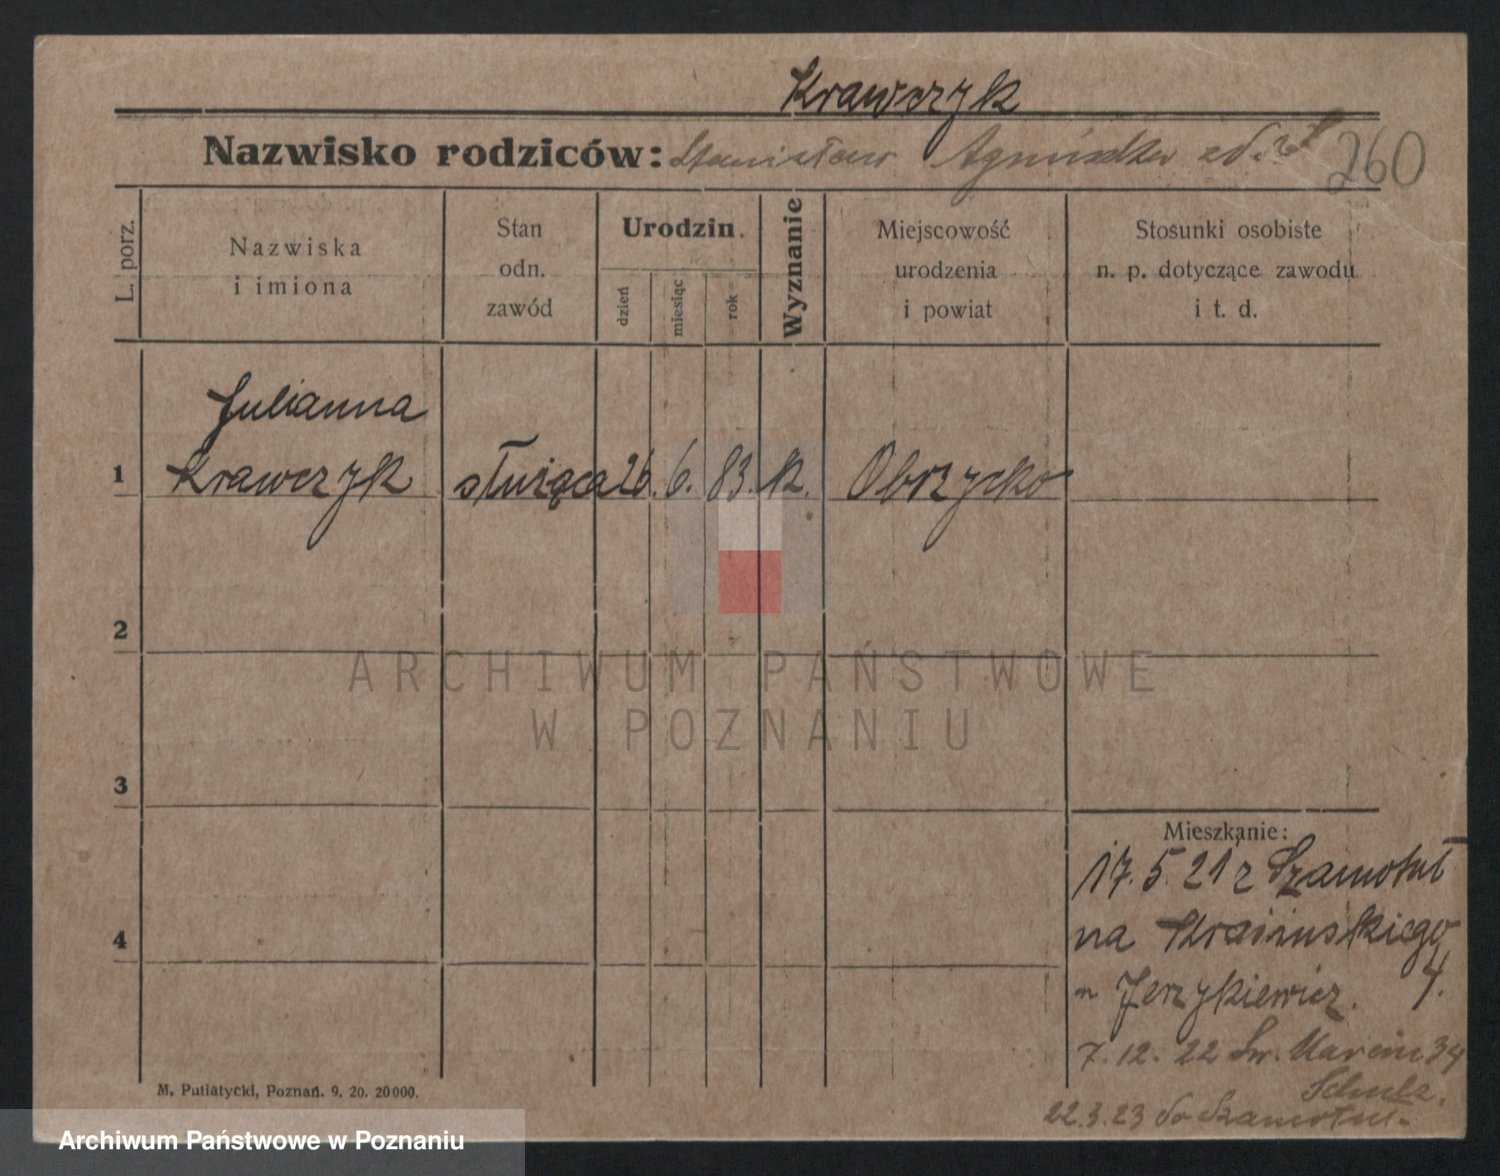 Krawczyk
Nazwisko rodziców: Stanisław Agnieszka
260
L. porz.
Nazwiska
i imiona
Stan
odn.
zawód
Urodzin.
dzień
miesiąc
rok
Wyznanie
Miejscowość
urodzenia
i powiat
Stosunki osobiste
n. p. dotyczące zawodu
i t. d.
Julianna
1 Krawczyk służąca 26. 6. 83. k. Obrzycko
2
3
4
Mieszkanie:
17. 5. 21 z Szamotuł
na
4.
Jerzykiewicz.
7. 12. 22 Św. Marcin 34
Schulz.
22.3.23 do Szamotuł.
M. Putiatycki, Poznań. 9. 20. 20000.
ARCHIWUM PAŃSTWOWE
W POZNANIU
Archiwum Państwowe w Poznaniu